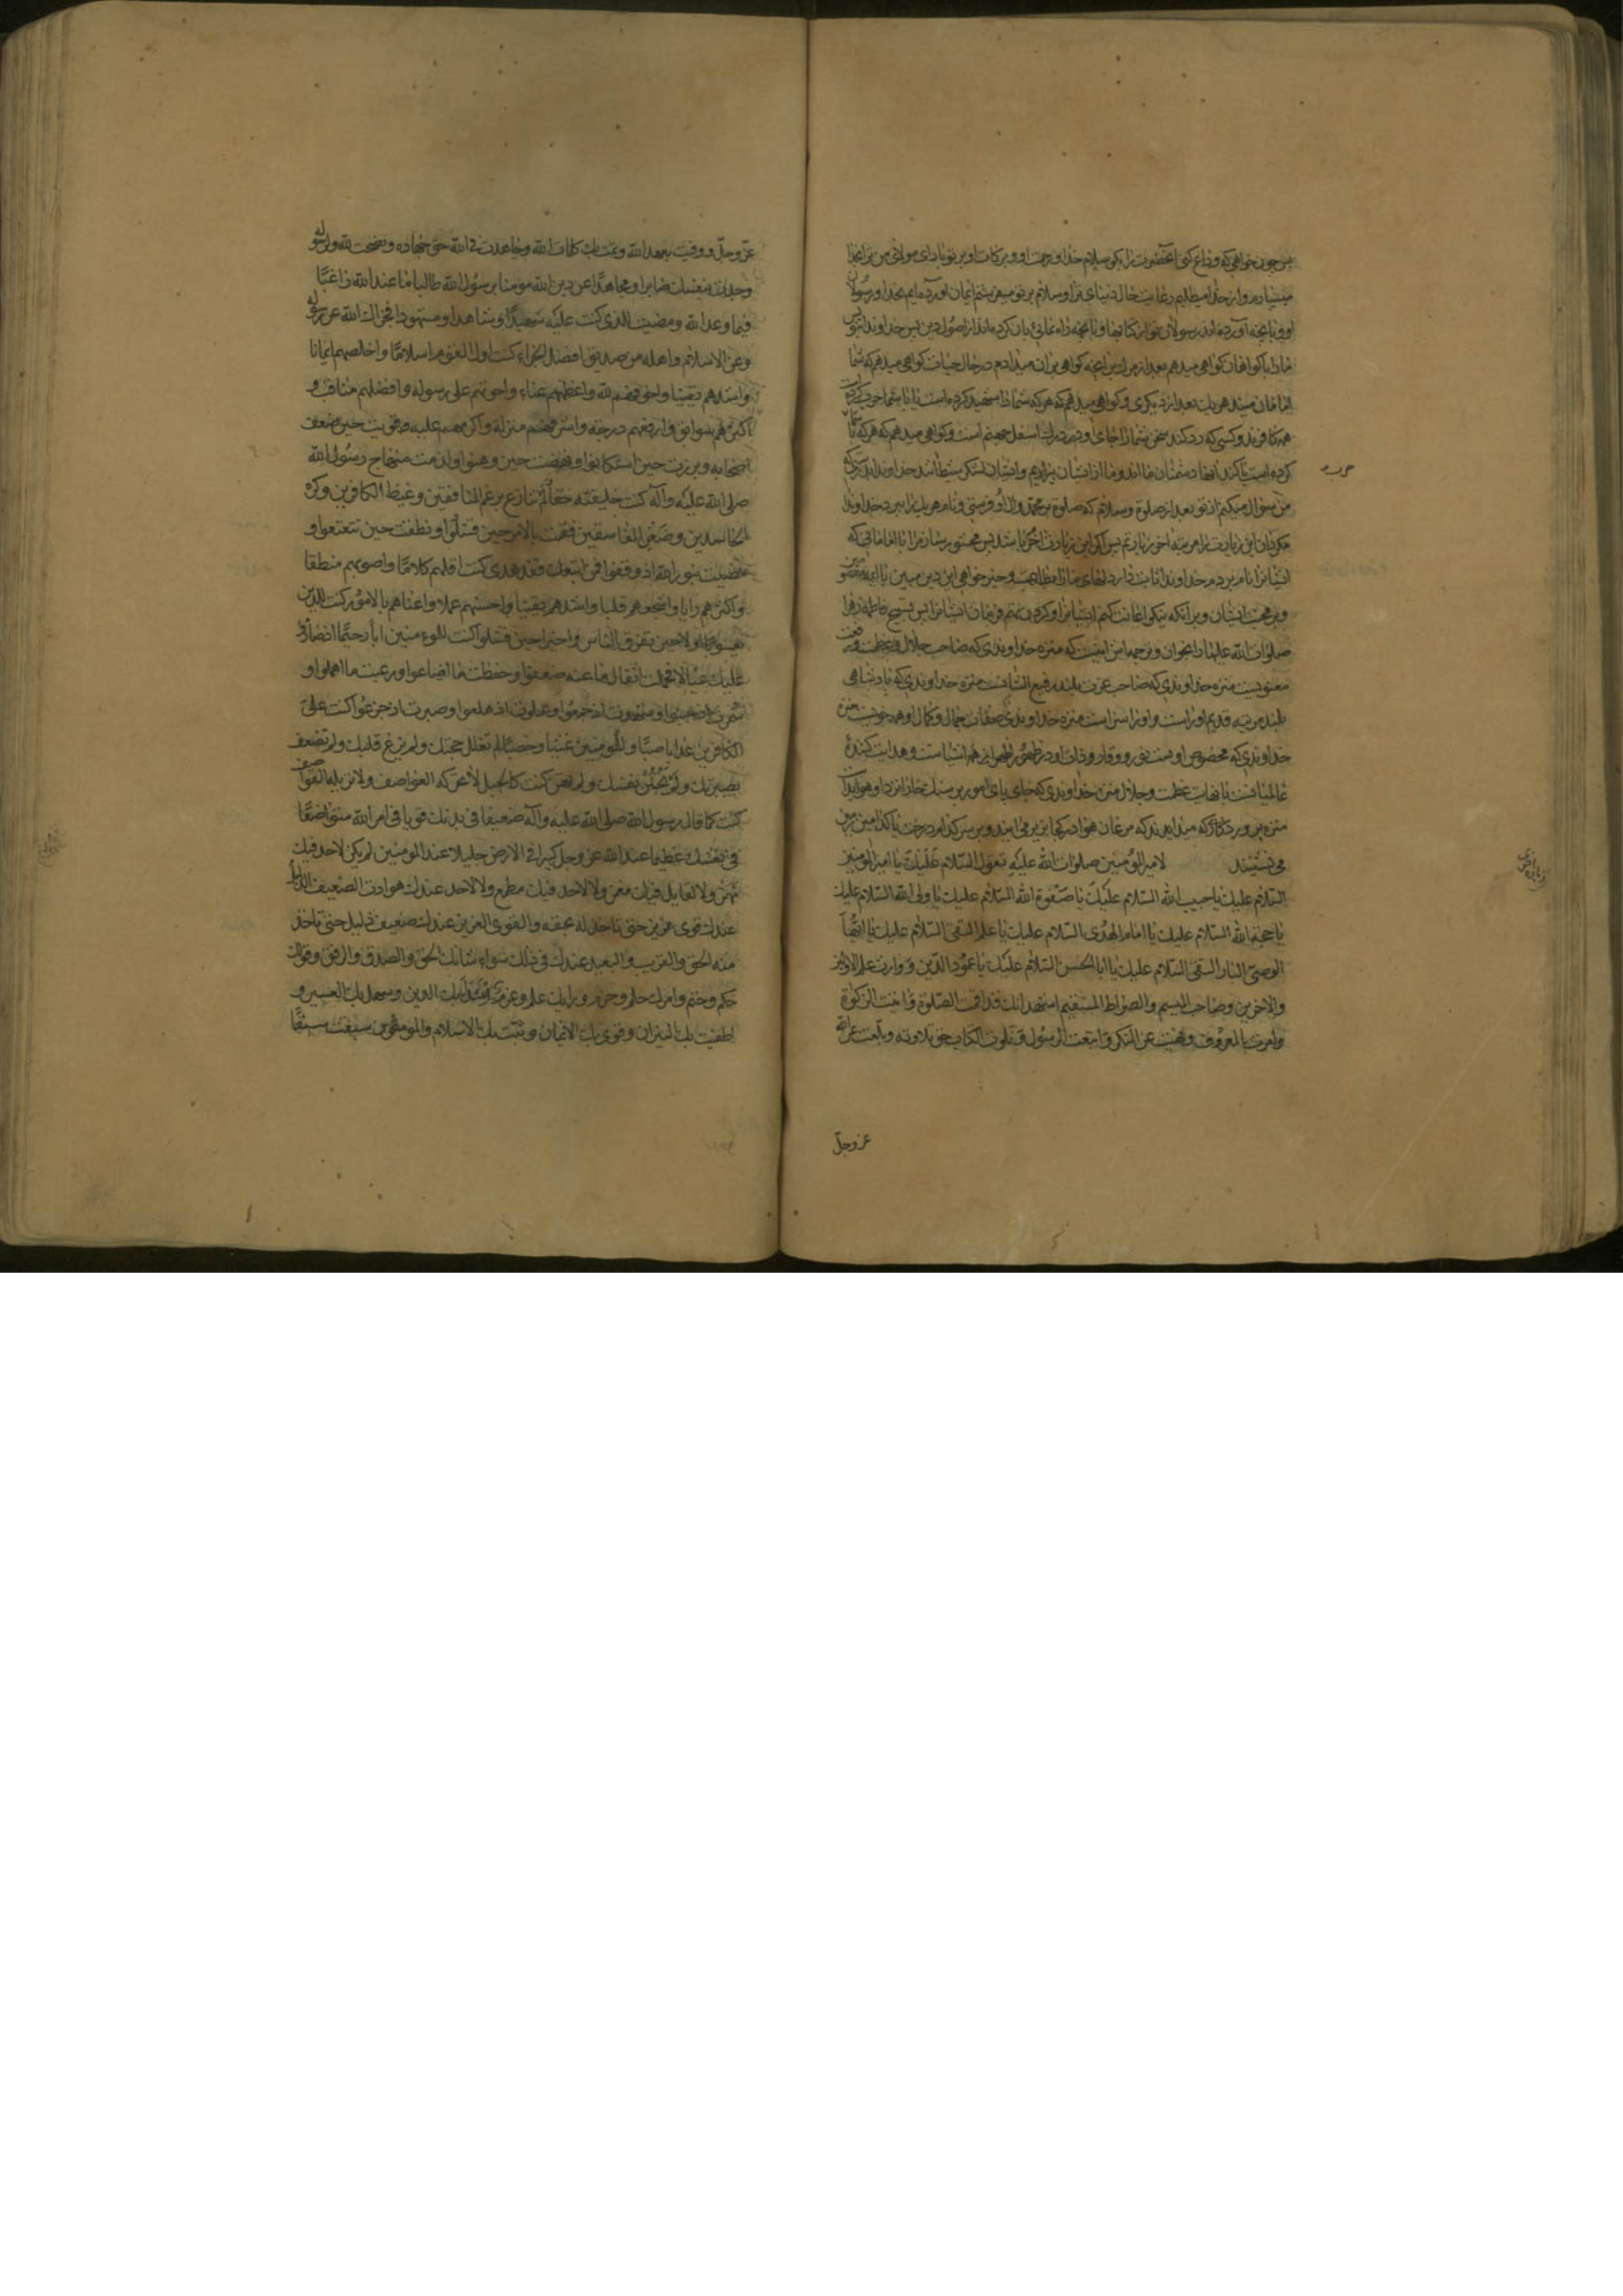 پس چون خواهی که وداع کنی آنحضرت را بکو سلام خدا و رحمت او و برکات او بر تو باد ای مولای من ترا بخدا
میسپارم و از خدا میطلبم رعایت حال دنیای ترا و سلام بر تو میفرستم ایمان آورده‌ایم بخدا و رسولان
او و بانچه آورده‌اند رسولان تو از کتابها و بانچه راه نمائی بان کرده‌اند از اصول دین پس خداوندا بنویس
مارا با کواهان کواهی میدهم بعد از مردن بانچه کواهی بران میدادم در حال حیات کواهی میدهم که شما
امامان منید هر یک بعد از دیکری و کواهی میدهم که هر که شما را شهید کرده است یا با شما حرب کرده
همه کافرند و کسی که رد کند سخن شما را جای او در درک اسفل جهنم است و کواهی میدهم که هر که با شما
کرده است یا کند آنها دشمنان ما اند و ما از ایشان بیزاریم و ایشان لشکر شیطانند خداوندا بدرستی که
من سؤال میکنم از تو بعد از صلوة و سلام که صلوة بر محمد و آل او فرستی و نام هر یک را ببرد خداوندا
مکردان این زیارت را مرتبه آخر زیارتم پس اکر این زیارت آخر باشد پس محشور ساز مرا با امامانی که
ایشانرا نام بردم خداوندا ثابت دار دلهای ما را
و بر محبت ایشان و بر آنکه نیکو اعانت کنم ایشانرا و کردن نهم فرمان ایشانرا پس تسبیح فاطمه زهرا
صلوات الله علیها را بخوان و ترجمه‌اش اینست که منزه خداوندی که صاحب جلال و عظمت و
معنویست منزه خداوندی که صاحب عزت بلند رفیع الشانست منزه خداوندی که پادشاهی
بلند مرتبه قدیم او راست و او را سزاست منزه خداوندی صفات جمال و کمال او همه خوبست منزه
خداوندی که مخصوص اوست نور و وقار و ذات او در ظهور ظهر از همه اشیاست و هدایت کنندهٔ
عالمیانست با نهایت عظمت و جلال منزه خداوندی که جای پای مور بر سنک خارا نزد او هویداست
منزه پروردکاری که میداند که مرغان هوا در کجا بزیر می‌آیند و بر سر کدام درخت یا کدام زمین
می‌نشینند لامیر المؤمنین صلوات الله علیه تقول السلام علیک یا امیر المؤمنین
السلام علیک یا حبیب الله السلام علیک یا صفوة الله السلام علیک یا ولی الله السلام علیک
یا حجة الله السلام علیک یا امام الهدی السلام علیک یا علم التقی السلام علیک یا ایها
الوصی البار التقی السلام علیک یا ابا الحسن السلام علیک یا عمود الدین و وارث علم الاولین
والاخرین وصاحب المیسم والصراط المستقیم اشهد انک قد اقمت الصلوة وآتیت الزکوة
وامرت بالمعروف ونهیت عن المنکر واتبعت الرسول وتلوت الکتاب حق تلاوته وبلغت عن الله
عز وجل
عز وجل ووفیت بعهد الله وتمت بک کلمات الله وجاهدت فی الله حق جهاده ونصحت لله ولرسوله
وجدت بنفسک صابرا ومجاهدا عن دین الله مؤمنا برسول الله طالبا ما عند الله راغبا
فیما وعد الله ومضیت للذی کنت علیه شهیدا وشاهدا ومشهودا فجزاک الله عن رسوله
وعن الاسلام واهله من صدیق افضل الجزاء کنت اول القوم اسلاما واخلصهم ایمانا
واشدهم یقینا واخوفهم لله واعظمهم عناء واحوطهم علی رسوله وافضلهم مناقب و
اکثرهم سوابق وارفعهم درجة واشرفهم منزلة واکرمهم علیه قویت حین ضعف
اصحابه وبرزت حین استکانوا ونهضت حین وهنوا ولزمت منهاج رسول الله
صلی الله علیه وآله کنت خلیفته حقا لم تنازع برغم المنافقین وغیظ الکافرین وکره
الحاسدین وضغن الفاسقین فقمت بالامر حین فشلوا ونطقت حین تتعتعوا و
مضیت بنور الله اذ وقفوا فمن اتبعک فقد هدی کنت اقلهم کلاما واصوبهم منطقا
واکثرهم رایا واشجعهم قلبا واشدهم یقینا واحسنهم عملا واعناهم بالامور کنت للدین
یعسوبا اولا حین تفرق الناس واخیرا حین فشلوا کنت للمؤمنین ابا رحیما اذ صاروا
علیک عیالا فحملت اثقال ما عنه ضعفوا وحفظت ما اضاعوا ورعیت ما اهملوا و
شمرت اذ جبنوا وعلوت اذ هلعوا وصبرت اذ جزعوا کنت علی
الکافرین عذابا صبا وللمؤمنین غیثا وخصبا لم تفلل حجتک ولم یزغ قلبک ولم تضعف
بصیرتک ولم تجبن نفسک ولم تهن کنت کالجبل لا تحرکه العواصف ولا تزیله القواصف
کنت کما قال رسول الله صلی الله علیه وآله ضعیفا فی بدنک قویا فی امر الله متواضعا
فی نفسک عظیما عند الله عز وجل کبیرا فی الارض جلیلا عند المؤمنین لم یکن لاحد فیک
مهمز ولا لقایل فیک مغمز ولا لاحد فیک مطمع ولا لاحد عندک هوادة الضعیف الذلیل
عندک قوی عزیز حتی تاخذ له بحقه والقوی العزیز عندک ضعیف ذلیل حتی تاخذ
منه الحق والقریب والبعید عندک فی ذلک سواء شانک الحق والصدق والرفق وقولک
حکم وحتم وامرک حلم وحزم ورایک علم وعزم اعتدل بک الدین وسهل بک العسیر و
اطفئت بک النیران وقوی بک الایمان وثبت بک الاسلام والمؤمنون سبقت سبقا